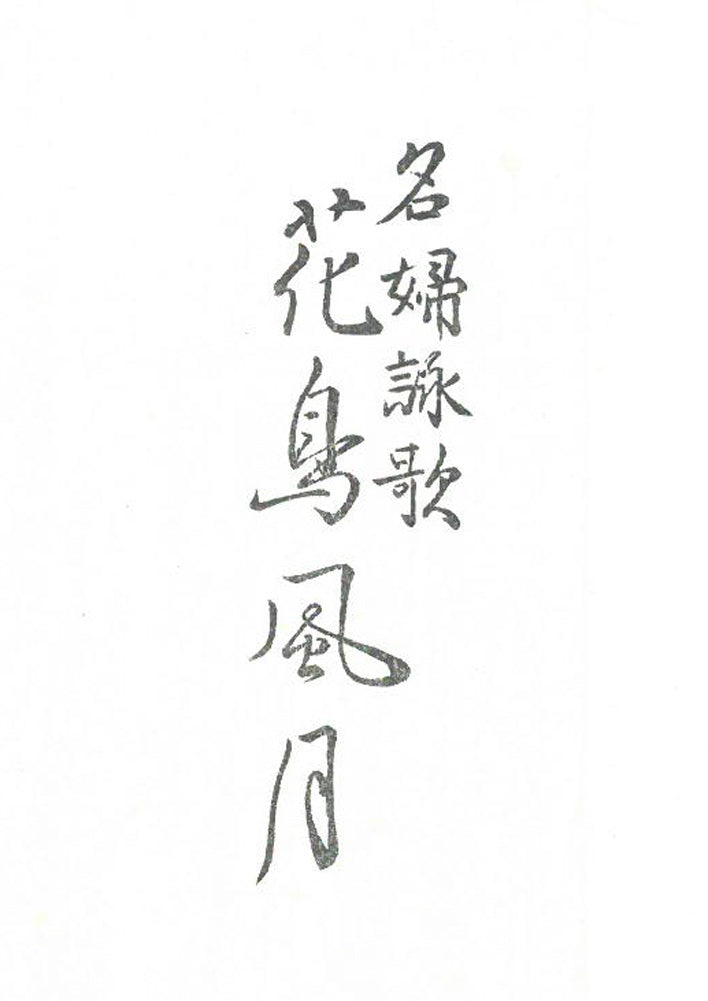 名婦詠歌
花鳥風月